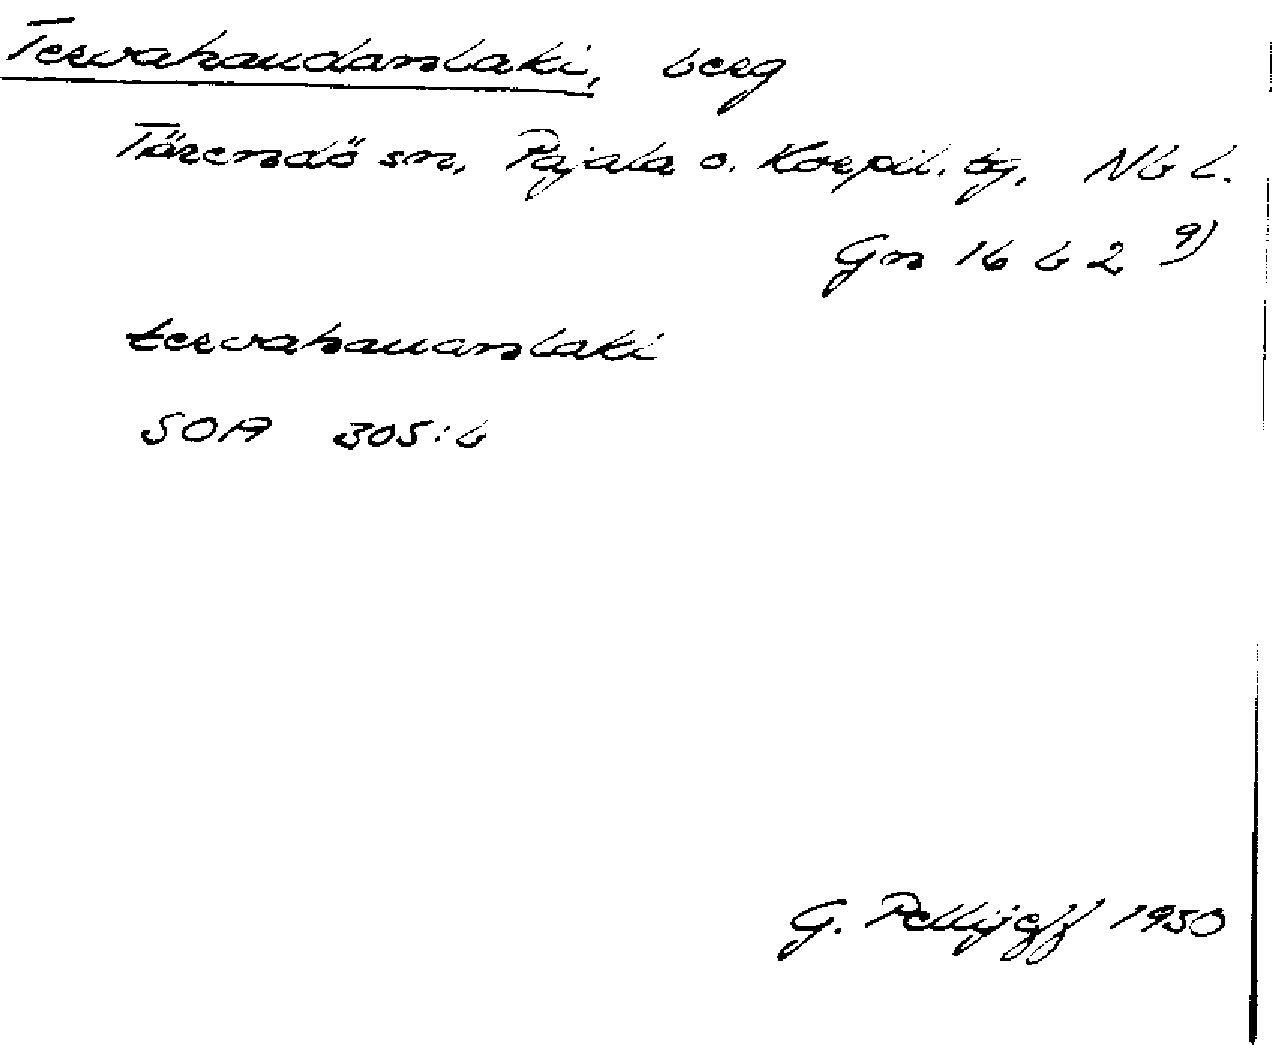 Tervahaudanlaki, berg
Tärendö sn, Pajala o. Korpil. tg, Nb L.
Gn 16 b 2 9)
tervahauanlaki
SOA 305:6
G. Pellijeff 1950